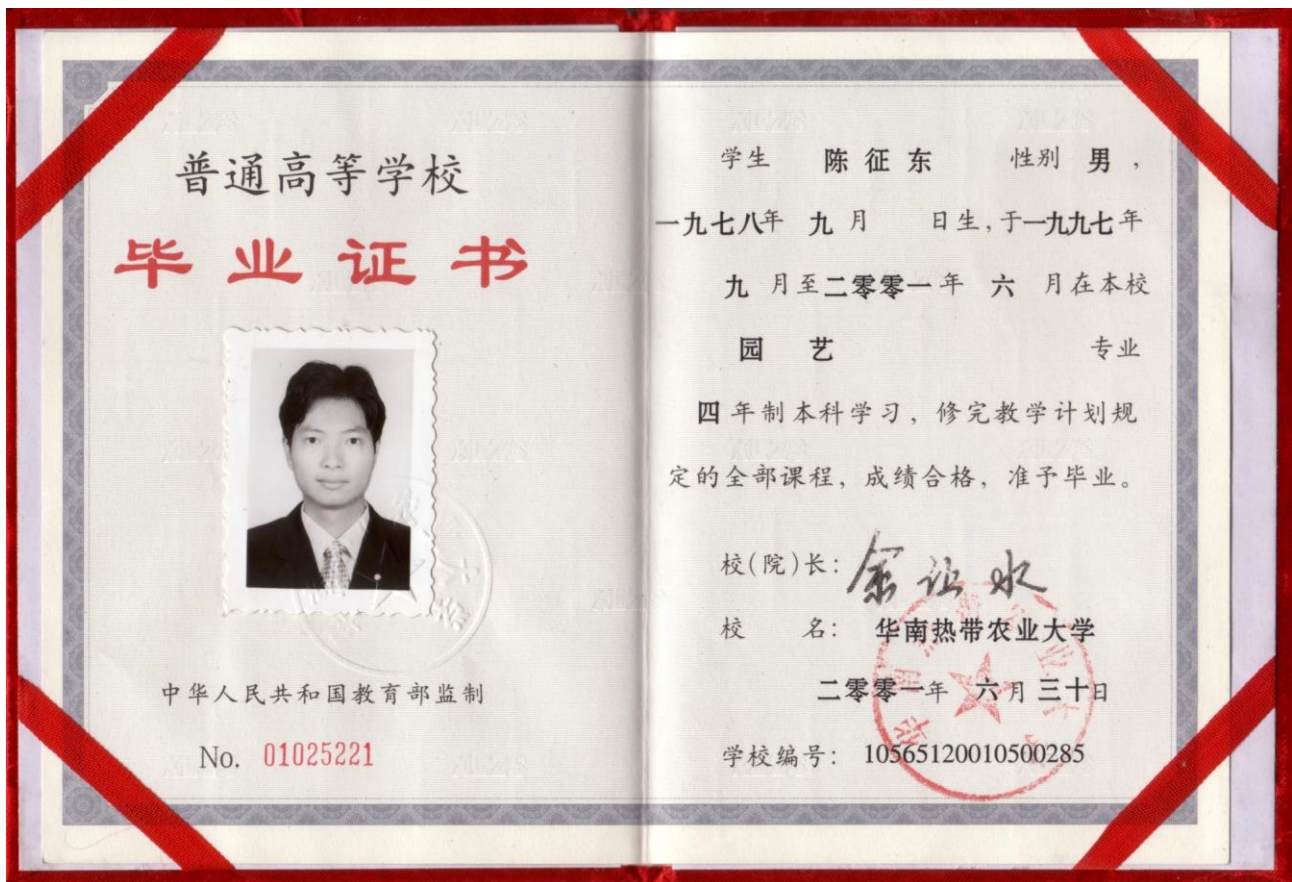 普通高等学校
毕业证书
中华人民共和国教育部监制
No. 01025221
学生 陈征东 性别 男，
一九七八年 九月 日生，于一九九七年
九 月至二零零一年 六 月在本校
园 艺 专业
四年制本科学习，修完教学计划规
定的全部课程，成绩合格，准予毕业。
校（院）长：余让水
校 名：华南热带农业大学
二零零一年 六月三十日
学校编号：105651200105002​85